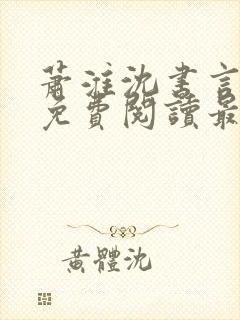 蕭淮沈書言
免費閱讀最
黃體沈